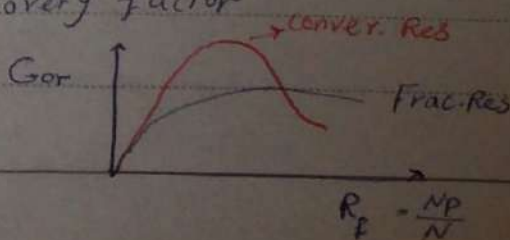 overy factor
conver. Res
Gor
Frac. Res
R_f = Np/N